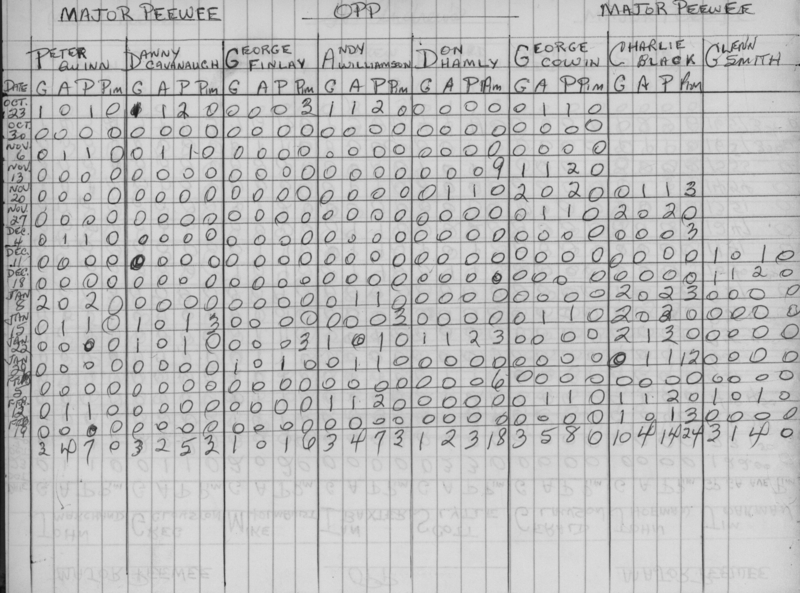 MAJOR PEEWEE OPP MAJOR PEEWEE
PETER QUINN DANNY CAVANAUGH GEORGE FINLAY ANDY WILLIAMSON DON HAMLY GEORGE COWIN CHARLIE BLACK GLENN SMITH
DATE G A P Pim G A P Pim G A P Pim G A P Pim G A P Pim G A P Pim G A P Pim
OCT. 23 1 0 1 0 1 2 0 0 0 0 3 1 1 2 0 0 0 0 0 0 1 1 0
OCT. 30 0 0 0 0 0 0 0 0 0 0 0 0 0 0 0 0 0 0 0 0 0 0 0 0
NOV. 6 0 1 1 0 0 1 1 0 0 0 0 0 0 0 0 0 0 0 0 0 0 0 0 0
NOV 13 0 0 0 0 0 0 0 0 0 0 0 0 0 0 0 0 0 0 0 9 1 1 2 0
NOV 20 0 0 0 0 0 0 0 0 0 0 0 0 0 0 0 0 0 1 1 0 2 0 2 0 0 1 1 3
NOV. 27 0 0 0 0 0 0 0 0 0 0 0 0 0 0 0 0 0 0 0 0 0 1 1 0 2 0 2 0
DEC. 4 0 1 1 0 0 0 0 0 0 0 0 0 0 0 0 0 0 0 0 0 0 0 0 0 0 0 0 3
DEC. 11 0 0 0 0 0 0 0 0 0 0 0 0 0 0 0 0 0 0 0 0 0 0 0 0 0 0 0 0 1 0 1 0
DEC. 18 0 0 0 0 0 0 0 0 0 0 0 0 0 0 0 0 0 0 0 0 0 0 0 0 0 0 0 0 1 1 2 0
JAN 8 2 0 2 0 0 0 0 0 0 0 0 0 0 1 1 0 0 0 0 0 0 0 0 0 2 0 2 3 0 0 0 0
JAN 15 0 1 1 0 1 0 1 3 0 0 0 0 0 0 0 3 0 0 0 0 0 1 1 0 2 0 2 0 0 0 0 0
JAN 22 0 0 0 0 1 0 1 0 0 0 0 3 1 0 1 0 1 1 2 3 0 0 0 0 2 1 3 0 0 0 0 0
JAN 0 0 0 0 0 0 0 0 1 0 1 0 0 1 1 0 0 0 0 0 0 0 0 0 0 1 1 12 0 0 0 0
0 0 0 0 0 0 0 0 0 0 0 0 0 0 0 0 0 0 0 6 0 0 0 0 0 0 0 0 0 0 0 0
FEB. 12 0 1 1 0 0 0 0 0 0 0 0 0 1 1 2 0 0 0 0 0 0 1 1 0 1 1 2 0 1 0 1 0
FEB 19 0 0 0 0 0 0 0 0 0 0 0 0 0 0 0 0 0 0 0 0 0 0 0 0 1 0 1 3 0 0 0 0
3 4 7 0 3 2 5 3 1 0 1 6 3 4 7 3 1 2 3 18 3 5 8 0 10 4 14 24 3 1 4 0